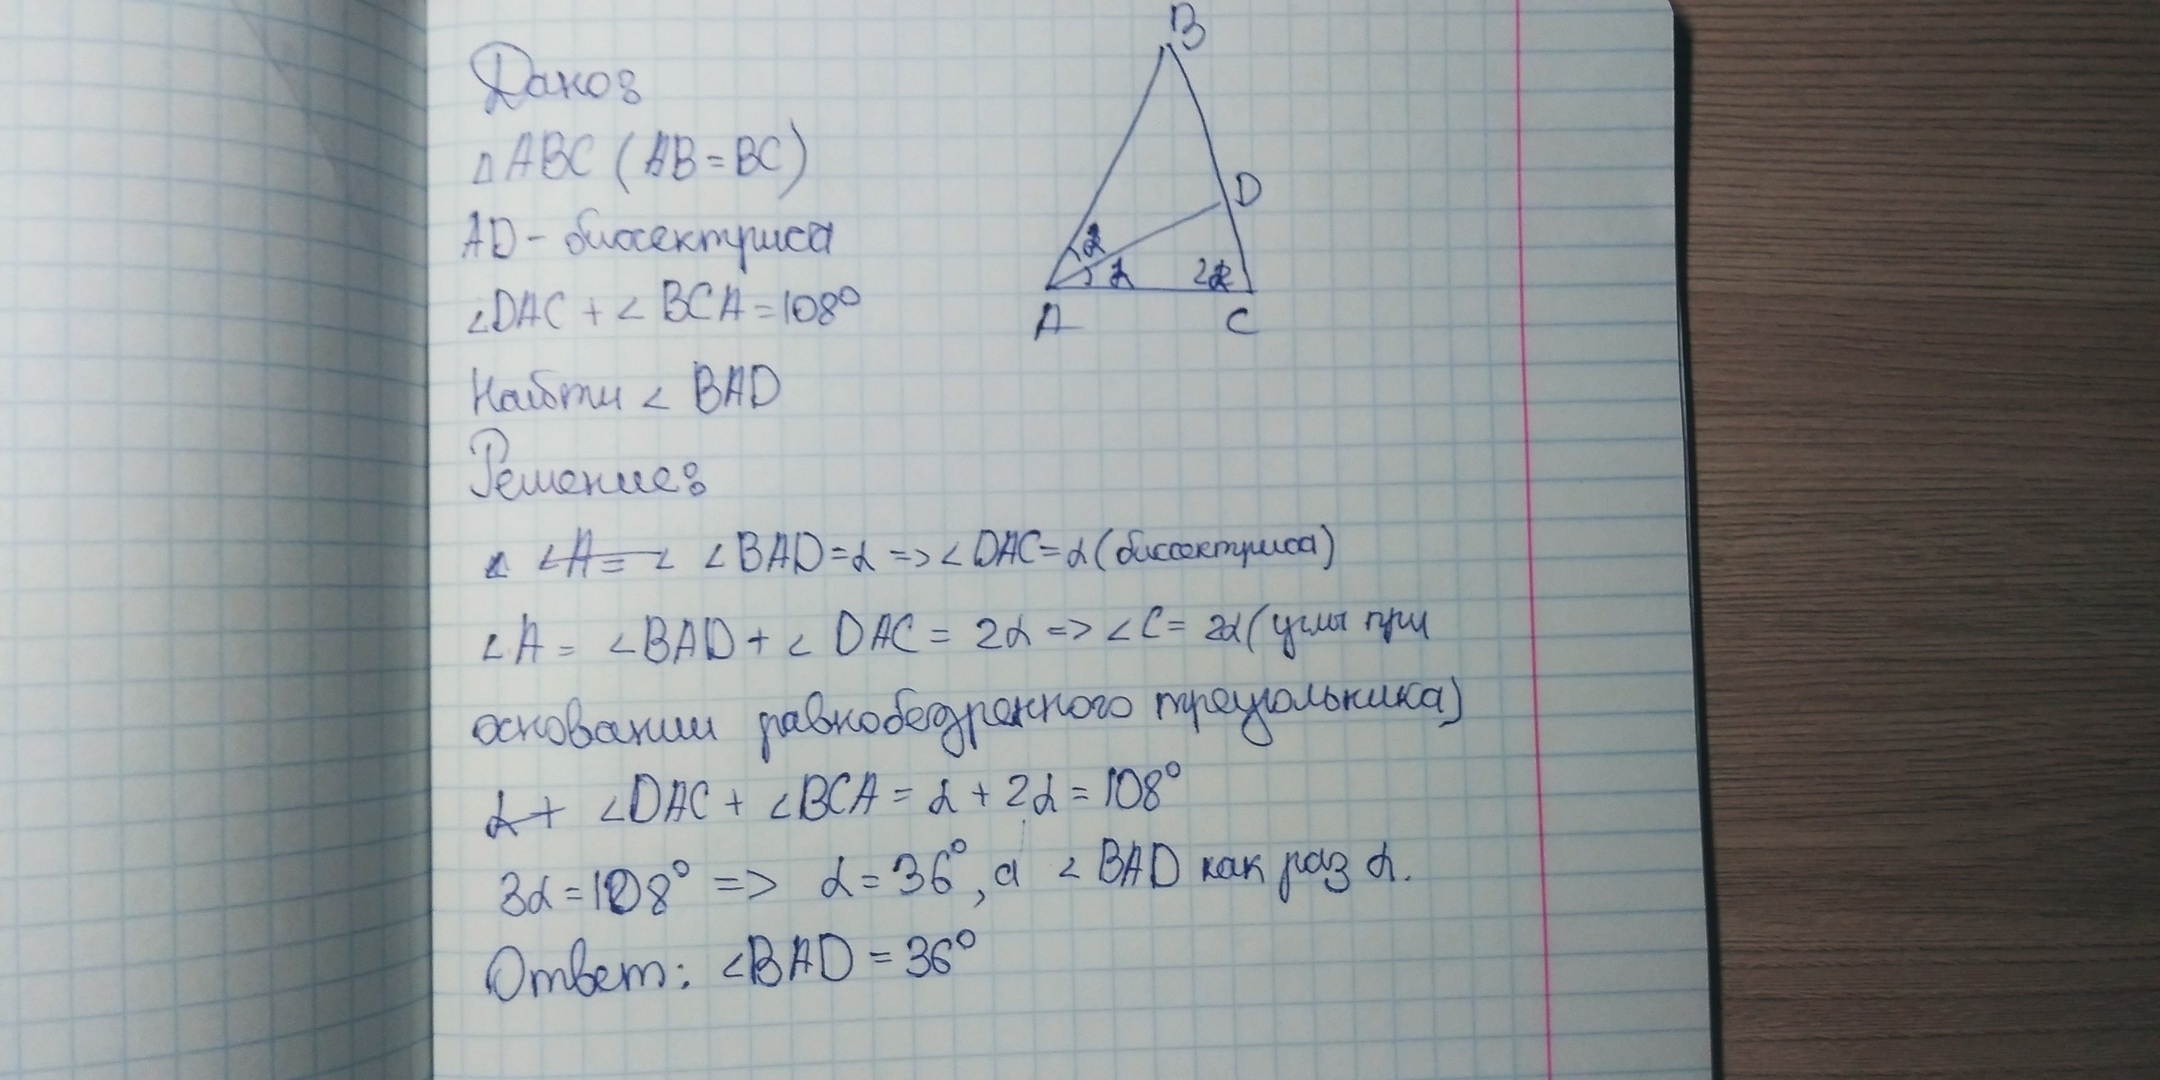 Дано:
△ABC (AB = BC)
AD - биссектриса
∠DAC + ∠BCA = 108°
Найти ∠BAD
Решение:
∠A = ∠ ∠BAD = α => ∠DAC = α (биссектриса)
∠A = ∠BAD + ∠DAC = 2α => ∠C = 2α (углы при
основании равнобедренного треугольника)
α + ∠DAC + ∠BCA = α + 2α = 108°
3α = 108° => α = 36°, а ∠BAD как раз α.
Ответ: ∠BAD = 36°
B
D
α
α
2α
A
C